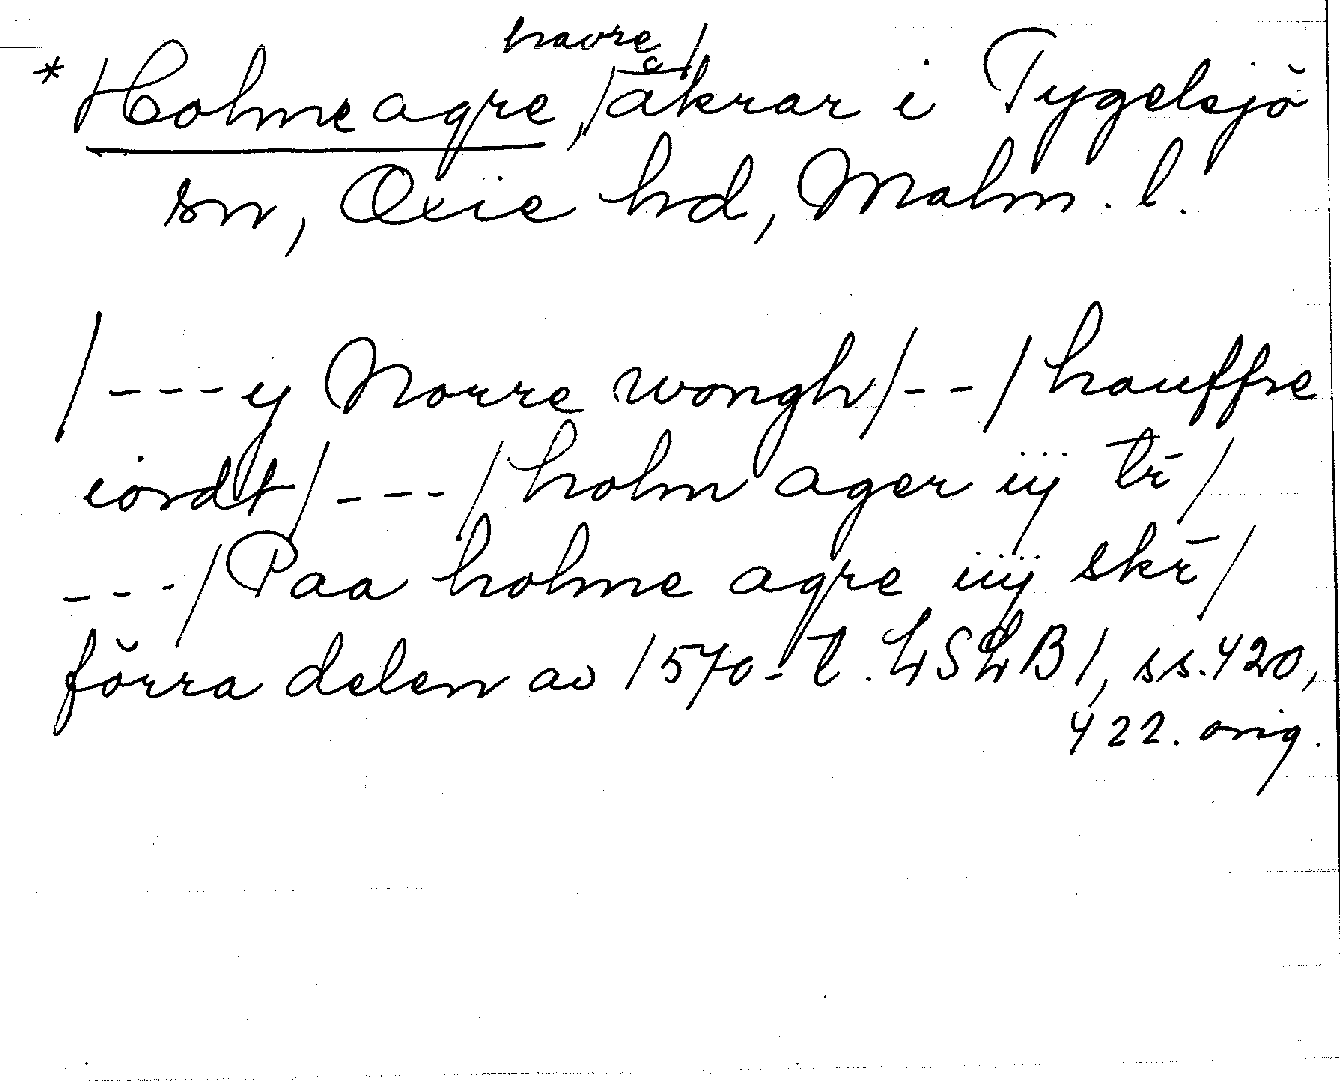 havre/
* Holmeagre, /åkrar i Tygelsjö
sn, Oxie hd, Malm. l.
/---ij Norre wongh/--/hauffre
iordt/---/holm ager iij tr̄/
---/Paa holme agre iiij skr̄/
förra delen av 1570-t. LSLB1, ss. 420,
422. orig.